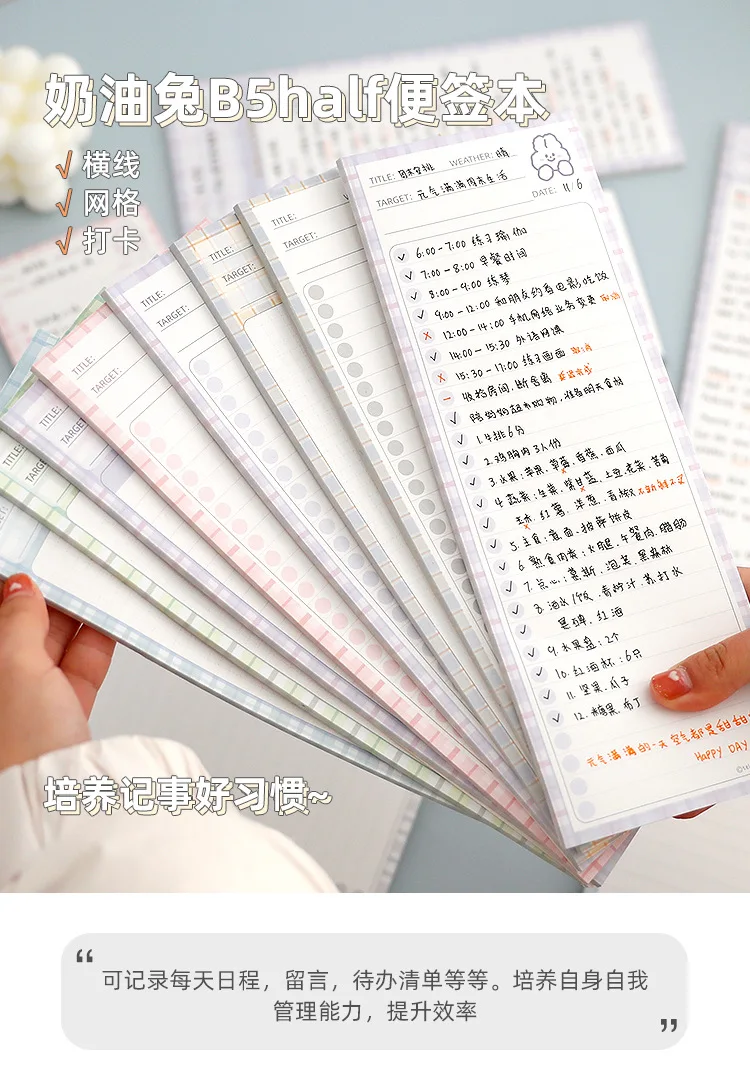 奶油兔B5half便签本
√ 横线
√ 网格
√ 打卡
TITLE: 周末安排 WEATHER: 晴
TARGET: 元气满满周末生活
DATE: 11/6
6:00-7:00 练习瑜伽
7:00-8:00 早餐时间
8:00-9:00 练琴
9:00-12:00 和朋友约看电影,吃饭
12:00-14:00 手机网络业务变更 取消
14:00-15:30 外语网课
15:30-17:00 练习画画 取消
收拾房间,断舍离
陪闺蜜超市购物,准备明天食材
1.牛排6分
2.鸡胸肉3人份
3.水果:苹果.草莓.香蕉.西瓜
4.蔬菜:生菜.紫甘蓝.土豆.花菜.苦菊
玉米.红薯.洋葱.青椒
5.主食:意面.披萨饼皮
6.熟食肉类:火腿.午餐肉.腊肠
7.点心:慕斯.泡芙.黑森林
8.酒水/饮.青柠汁.苏打水
果啤.红酒
9.水果盘:2个
10.红酒杯:6只
11.坚果.瓜子
12.糖果.布丁
元气满满的一天空气都是甜甜
HAPPY DAY
TITLE:
TARGET:
TITLE:
TARGET:
TITLE:
TARGET:
TITLE:
TARGET:
TITLE:
TARGET:
TITLE:
培养记事好习惯~
“
可记录每天日程,留言,待办清单等等。培养自身自我
管理能力,提升效率
”